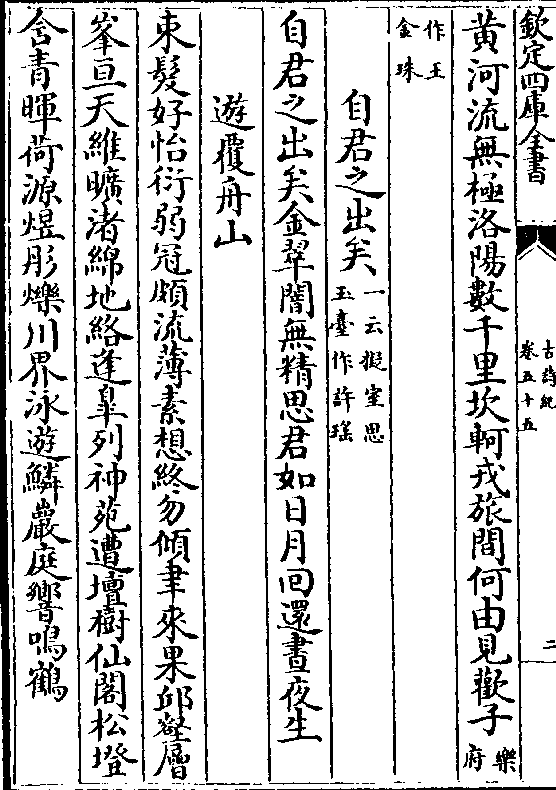 欽定四庫全書
古詩紀
卷五十五
二
黃河流無極洛陽數千里坎軻戎旅間何由見歡子樂府
作玉金珠
自君之出矣一云擬室思玉臺作許瑤
自君之出矣金翠闇無精思君如日月回還晝夜生
遊覆舟山
束髮好怡衍弱冠頗流薄素想終勿傾聿來果邱壑層
峯亘天維曠渚綿地絡逢臯列神苑遭壇樹仙閣松墱
含青暉荷源煜彤爍川界泳遊鱗巖庭響鳴鶴